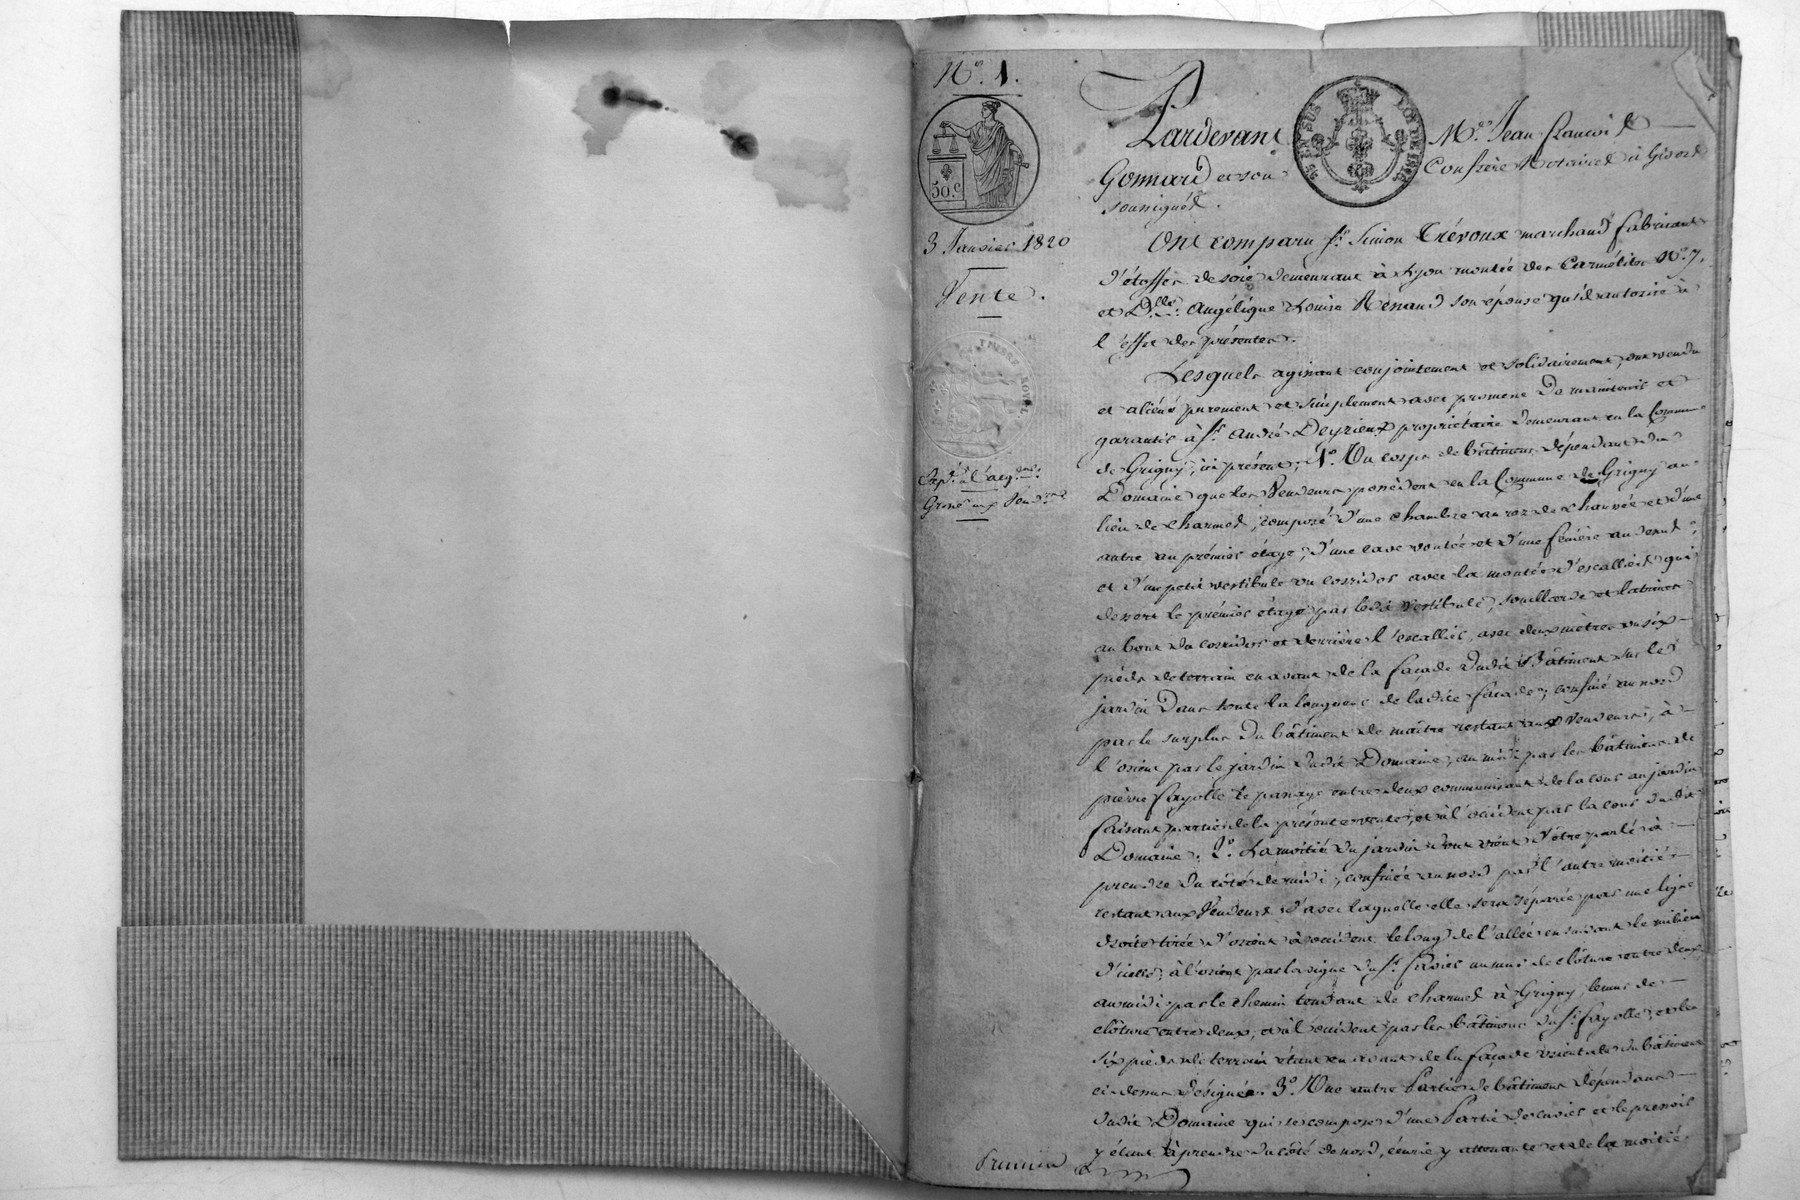 N.º 1.
50.c
3 Janvier 1820
Vente.
Exp.on à l'acq.
Grosse aux Vend.
Pardevant M.e Jean François
Gonnard et son Confrère Notaires à Givors
soussignés.
Ont comparu S.r Simon Trévoux marchand fabricant
d'étoffes de soie demeurant à Lyon montée des Carmélites N.º 7.
et D.lle Angélique Louise Renaud son épouse qu'il autorise à
l'effet des présentes.
Lesquels agissant conjointement et solidairement, ont vendu
et aliéné purement et simplement avec promesse de maintenir et
garantir à S.r André Deyrieux propriétaire demeurant en la Commune
de Grigny, ici présent; 1.º Un corps de bâtiment dépendant du
Domaine que les Vendeurs possèdent en la Commune de Grigny au
lieu de charmes, composé d'une chambre au rez de chaussée et d'une
autre au prémier étage, d'une cave voutée et d'une fenière au dessus,
et d'un petit vestibule ou corridor avec la montée d'escalliers qui
dessert le prémier étage par ledit vestibule, souillarde et latrines
au bout du corridor et derrière l'escallier, avec deux mètres ou six
pieds de terrain en avant de la façade dudit Bâtiment sur le
jardin dans toute la longueur de ladite façade; confiné au nord
par le surplus du bâtiment de maître restant aux Vendeurs, à
l'orient par le jardin dudit Domaine, au midi par les bâtimens de
pierre fayolle le passage entre deux communiquant de la cour au jardin
faisant partie de la présente vente, et à l'occident par la cour dudit
Domaine. 2.º La moitié du jardin dont vient d'être parlé à
prendre du côté de midi, confinée au nord par l'autre moitié
restant aux Vendeurs d'avec laquelle elle sera séparée par une ligne
droite tirée d'orient à occident le long de l'allée en suivant le milieu
d'icelle, à l'orient par la vigne du S.r un mur de clôture entre deux,
au midi par le chemin tendant de charmes à Grigny, le mur de
clôture entre deux, et à l'occident par les bâtimens du S.r fayolle, et les
six pieds de terrain étant en avant de la façade orientale du bâtiment
ci-dessus désigné. 3.º Une autre Partie de bâtiment dépendant
dudit Domaine qui se compose d'une Partie de cuvier et le pressoir
y étant à prendre du côté de nord, écurie y attenante et de la moitié